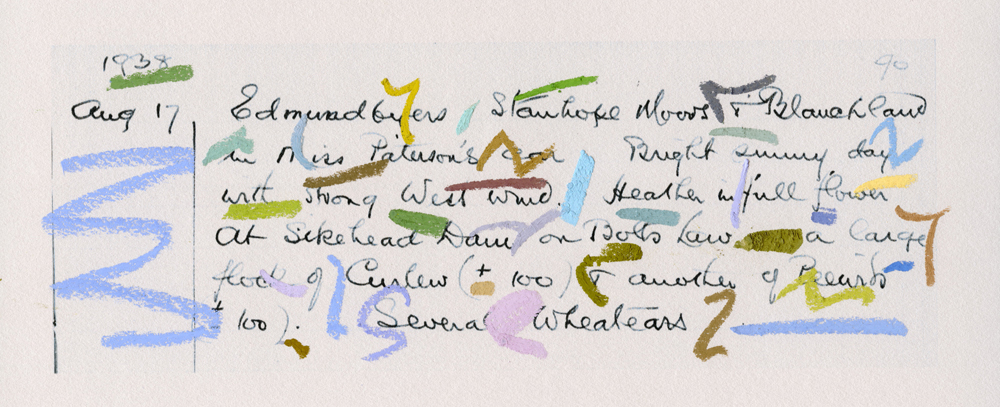 1938 90
Aug 17 Edmundbyers, Stanhope Moors & Blanchland
in Miss Paterson's car Bright sunny day
with strong West wind. Heather in full flower
At Sikehead Dam on Bolts Law a large
flock of Curlew (± 100) & another of Peewits
± 100). Several Wheatears